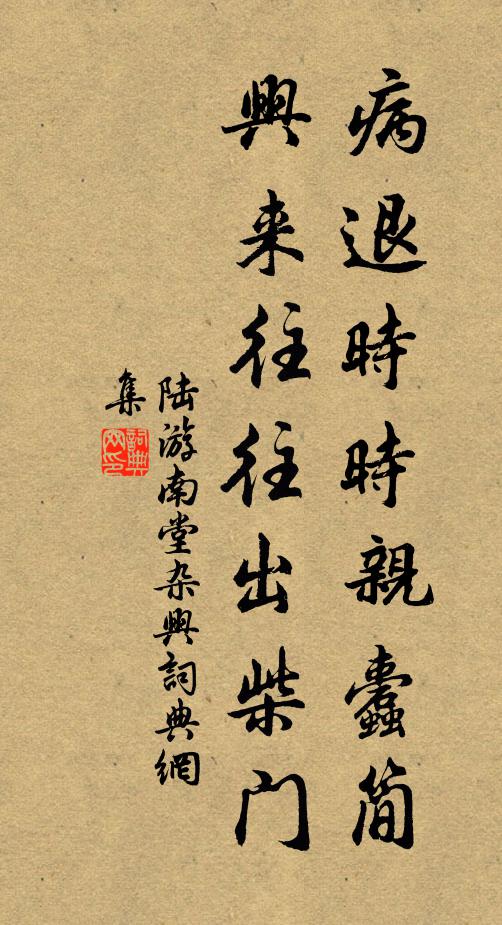 病退時時親蠹簡
興来往往出柴門
陆游南堂杂興詞典網
集
詞典
网印